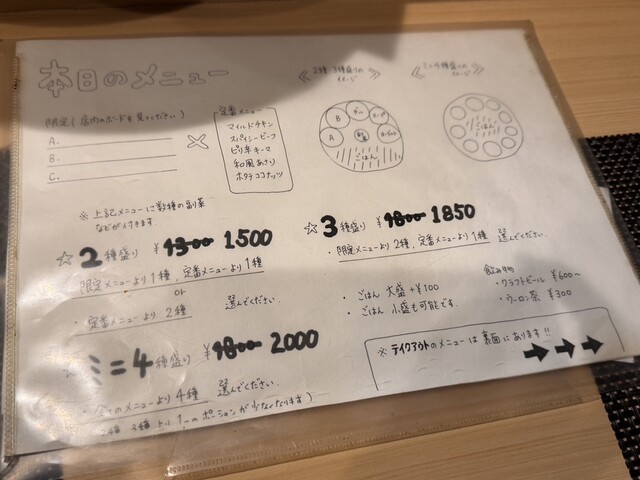 本日のメニュー
限定(店内のボードを見てください)
A.
B.
C.
×
定番メニュー
マイルドチキン
スパイシービーフ
ピリ辛キーマ
和風あさり
ホタテココナッツ
《2種・3種盛りの イメージ》
A
B
ごはん
《ミニ4種盛りの イメージ》
ごはん
※ 上記メニューに数種の副菜
などが付きます。
☆2種盛り ¥1300 1500
限定メニューより1種、定番メニューより1種
or
・定番メニューより2種
選んでください。
ミニ4種盛り ¥1800 2000
全てのメニューより4種 選んでください。
ポーションが少なくなります)
☆3種盛り ¥1800 1850
・限定メニューより2種、定番メニューより1種 選んでください。
・ごはん 大盛 +¥100
・ごはん 小盛も可能です。
飲み物
・クラフトビール ¥600〜
・ウーロン茶 ¥300
※ テイクアウトのメニューは裏面にあります!!